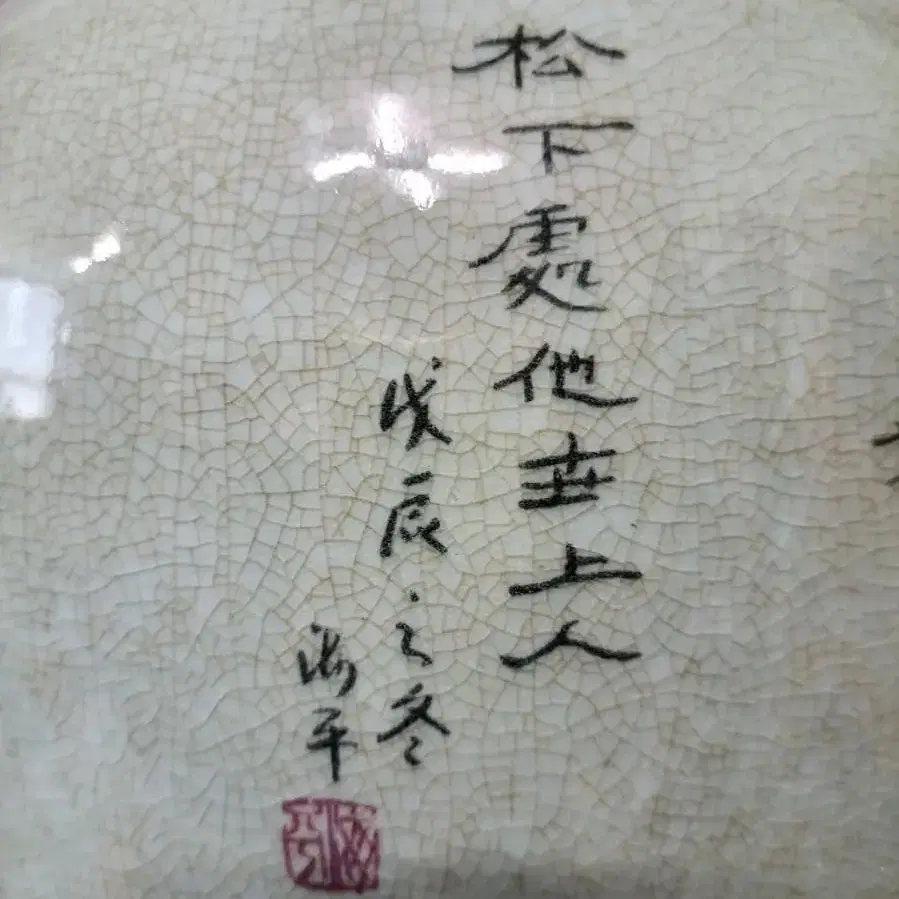 松下處他世上人
戊辰之冬
海平